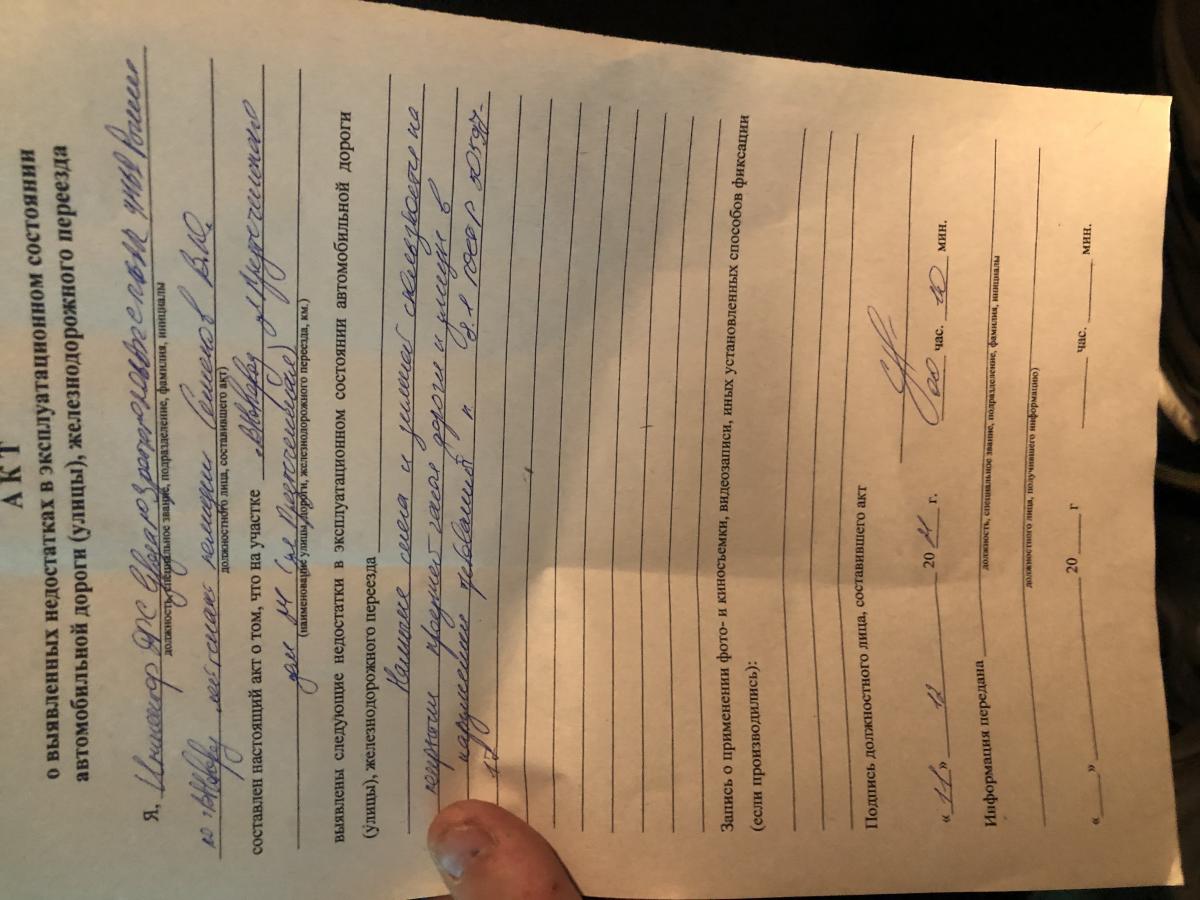 АКТ
о выявленных недостатках в эксплуатационном состоянии
автомобильной дороги (улицы), железнодорожного переезда
Я, Инспектор ДПС
должность, специальное звание, подразделение, фамилия, инициалы
по г. лейтенант полиции Семенов В.Ю.
должностного лица, составившего акт)
составлен настоящий акт о том, что на участке
дом 14
(наименование улицы, дороги, железнодорожного переезда, км.)
выявлены следующие недостатки в эксплуатационном состоянии автомобильной дороги
(улицы), железнодорожного переезда
Наличие снега и зимней скользкости на
покрытии проезжей части дороги и улице в
нарушении требований п 8.1 ГОСТ Р 50597-
17
Запись о применении фото- и киносъемки, видеозаписи, иных установленных способов фиксации
(если производились):
Подпись должностного лица, составившего акт
« 11 » 12 20 21 г. 00 час. 10 мин.
Информация передана
должность, специальное звание, подразделение, фамилия, инициалы
должностного лица, получившего информацию)
« » 20 г час. мин.